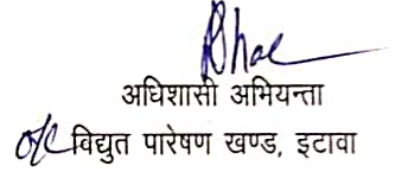 अधिशासी अभियन्ता
o/c विद्युत पारेषण खण्ड, इटावा